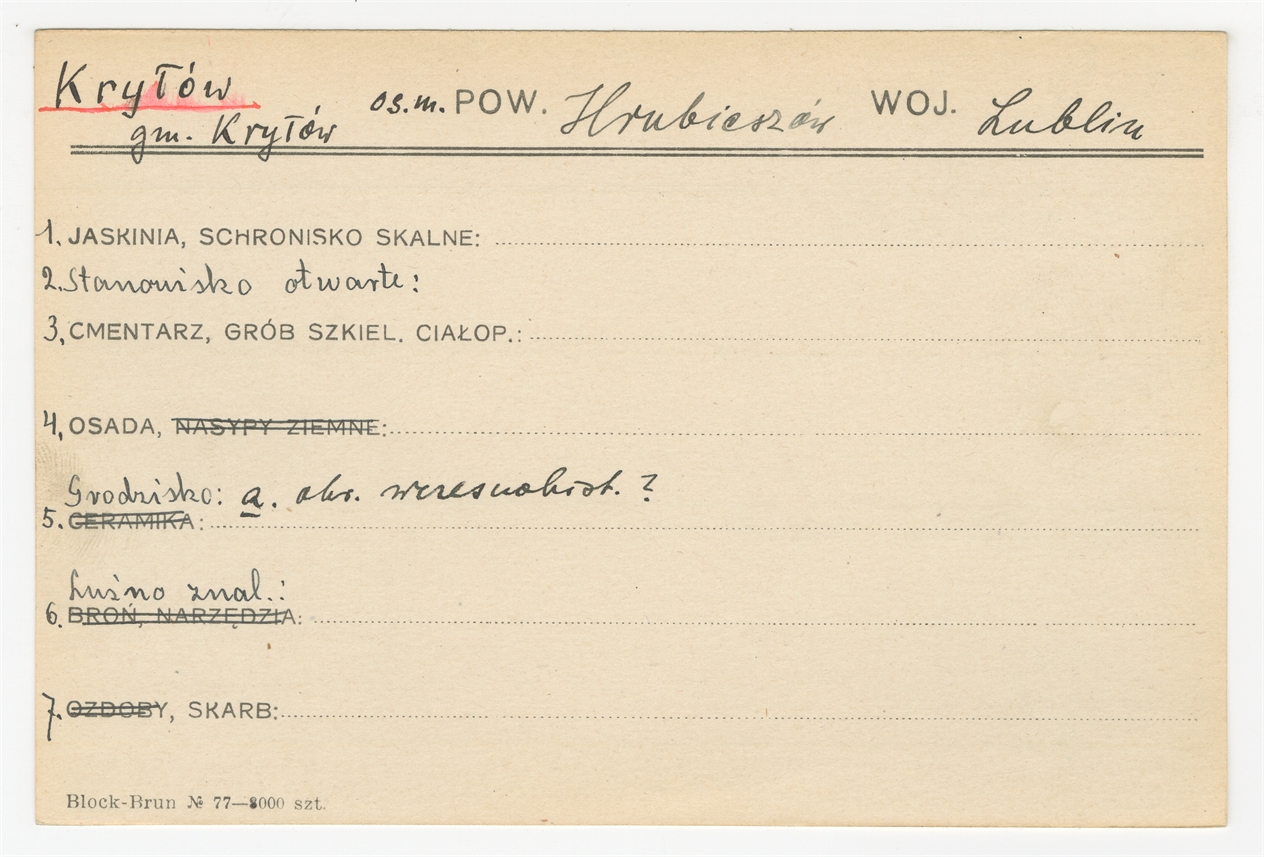 Kryłów os.m. POW. Hrubieszów WOJ. Lublin
gm. Kryłów
1. JASKINIA, SCHRONISKO SKALNE:
2. Stanowisko otwarte:
3. CMENTARZ, GRÓB SZKIEL. CIAŁOP.:
4. OSADA, NASYPY ZIEMNE:
Grodzisko: a. okr. wczesnohist. ?
5. CERAMIKA:
Luźno znal.:
6. BROŃ, NARZĘDZIA:
7. OZDOBY, SKARB:
Block-Brun № 77—3000 szt.